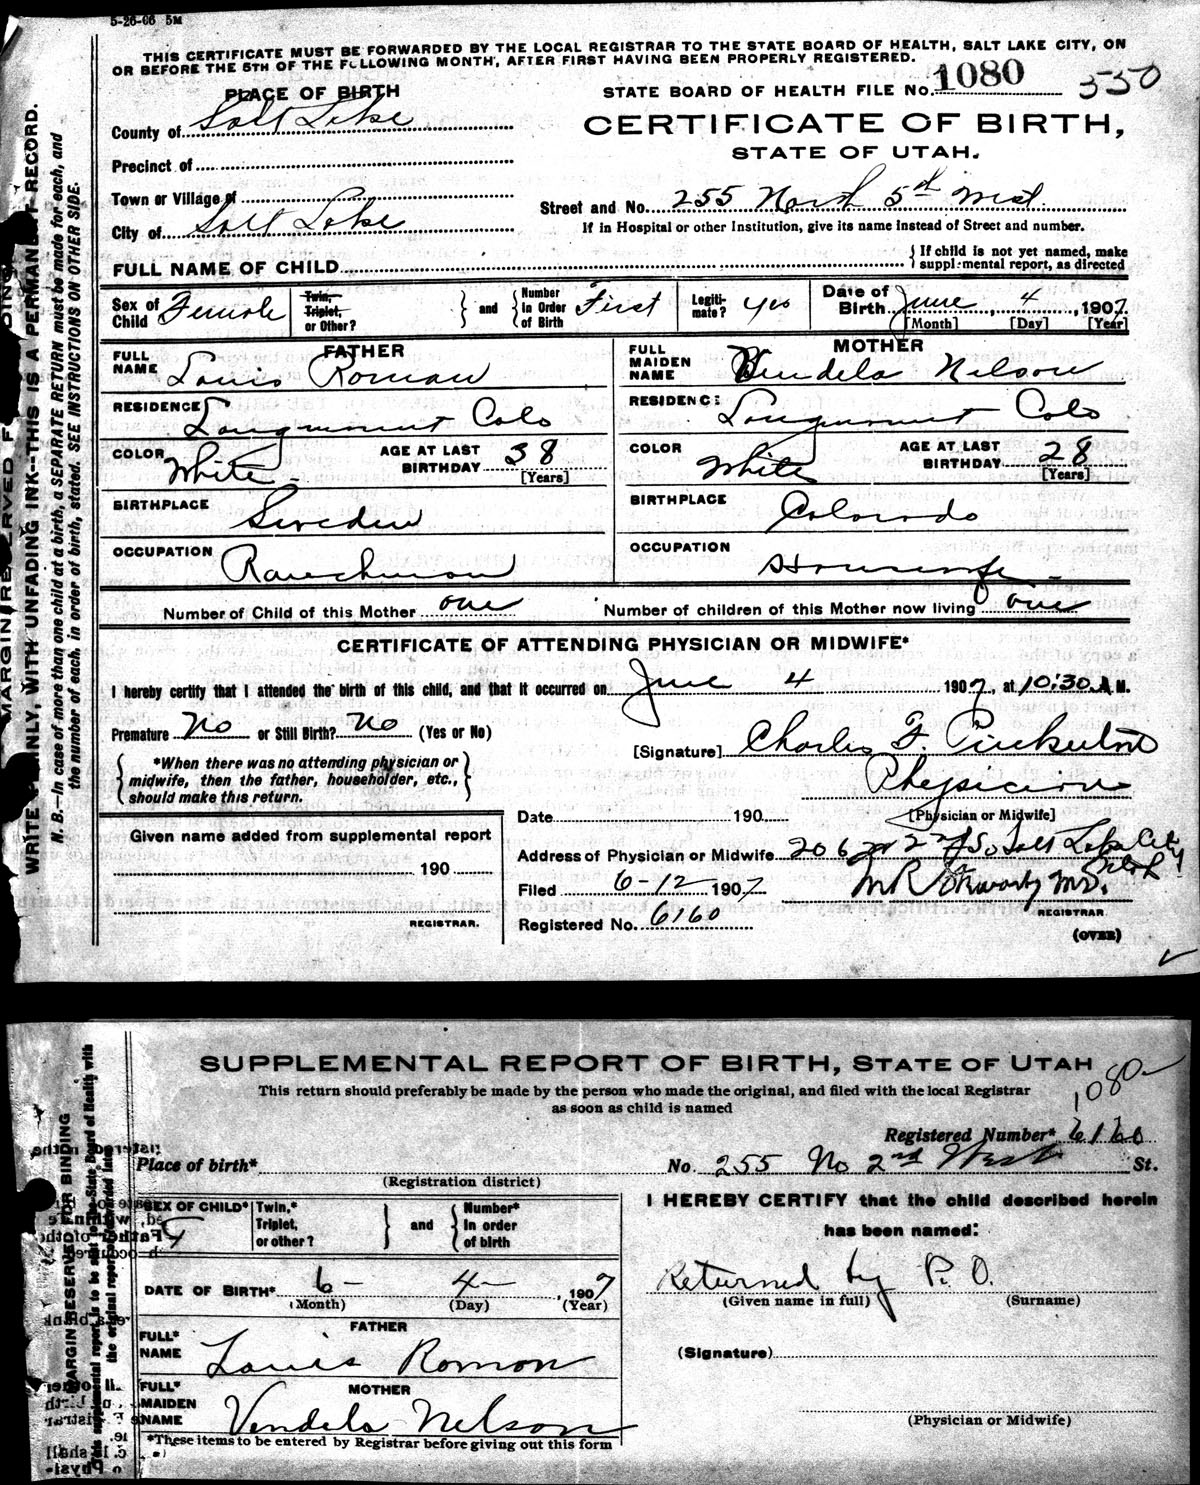 5-26-06 5M
THIS CERTIFICATE MUST BE FORWARDED BY THE LOCAL REGISTRAR TO THE STATE BOARD OF HEALTH, SALT LAKE CITY, ON
OR BEFORE THE 5TH OF THE FOLLOWING MONTH, AFTER FIRST HAVING BEEN PROPERLY REGISTERED.
PLACE OF BIRTH
STATE BOARD OF HEALTH FILE No. 1080 550
County of Salt Lake
CERTIFICATE OF BIRTH,
STATE OF UTAH.
Precinct of
Town or Village of
Street and No. 255 North 5th West
City of Salt Lake
If in Hospital or other Institution, give its name instead of Street and number.
FULL NAME OF CHILD
{If child is not yet named, make
supplemental report, as directed
Sex of Child Female
Twin, Triplet, or Other?
and
Number in Order of Birth First
Legitimate? yes
Date of Birth June 4, 1907
[Month] [Day] [Year]
FATHER
FULL NAME Louis Roman
RESIDENCE Longmont Colo
COLOR White AGE AT LAST BIRTHDAY 38 [Years]
BIRTHPLACE Sweden
OCCUPATION Ranchman
MOTHER
FULL MAIDEN NAME Vendela Nelson
RESIDENCE Longmont Colo
COLOR White AGE AT LAST BIRTHDAY 28 [Years]
BIRTHPLACE Colorado
OCCUPATION Housewife
Number of Child of this Mother one Number of children of this Mother now living one
CERTIFICATE OF ATTENDING PHYSICIAN OR MIDWIFE*
I hereby certify that I attended the birth of this child, and that it occurred on June 4 1907, at 10:30 A.M.
Premature No or Still Birth? No (Yes or No)
[Signature] Charles F. Pinkerton
*When there was no attending physician or
midwife, then the father, householder, etc.,
should make this return.
Physician
[Physician or Midwife]
Date 190
Given name added from supplemental report
190
REGISTRAR.
Address of Physician or Midwife 206 2nd So Salt Lake City Utah
Filed 6-12 1907
M.D.
REGISTRAR
Registered No. 6160
(OVER)
MARGIN RESERVED FOR BINDING
WRITE PLAINLY, WITH UNFADING INK--THIS IS A PERMANENT RECORD.
N. B.—In case of more than one child at a birth, a SEPARATE RETURN must be made for each, and
the number of each, in order of birth, stated. SEE INSTRUCTIONS ON OTHER SIDE.
SUPPLEMENTAL REPORT OF BIRTH, STATE OF UTAH
This return should preferably be made by the person who made the original, and filed with the local Registrar
as soon as child is named
1080
Registered Number* 6160
Place of birth* No. 255 No 2nd West St.
(Registration district)
SEX OF CHILD* F
Twin,* Triplet, or other?
and
Number* In order of birth
DATE OF BIRTH* 6- 4- , 1907
(Month) (Day) (Year)
FATHER
FULL* NAME Louis Romon
MOTHER
FULL* MAIDEN NAME Vendela Nelson
*These items to be entered by Registrar before giving out this form
I HEREBY CERTIFY that the child described herein
has been named:
Returned by P. O.
(Given name in full) (Surname)
(Signature)
(Physician or Midwife)
MARGIN RESERVED FOR BINDING
This supplemental report is to be sent to the State Board of Health with
the original report